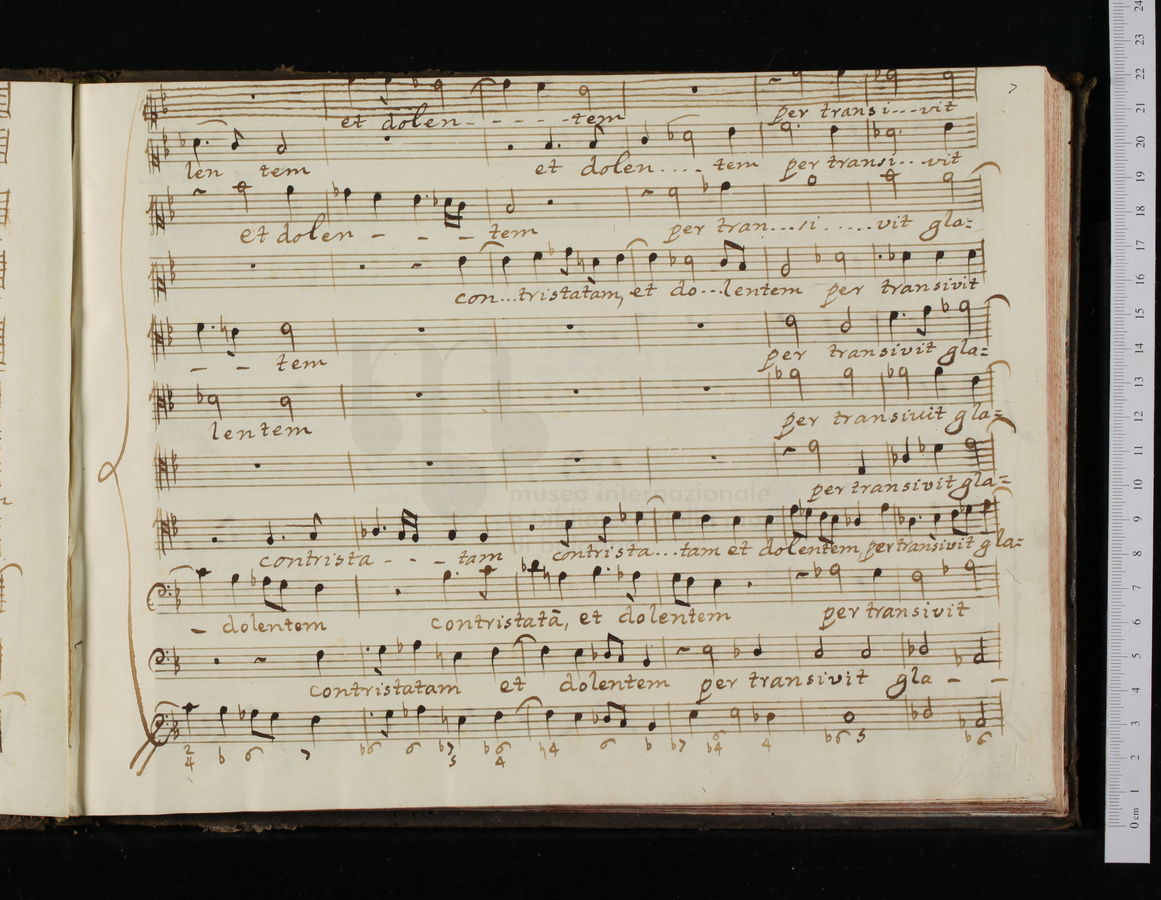 7
et dolen- - - - -tem per transi...vit
len tem et dolen.... tem per transi...vit
et dolen - - - tem per tran...si.....vit gla=
con...tristatam, et do...lentem per transivit
- - tem per transivit gla=
lentem per transivit gla=
per transivit gla=
contrista - - - tam contrista...tam et dolentem per transivit gla=
- dolentem contristatā, et dolentem per transivit
contristatam et dolentem per transivit gla - -
2 4 b 6 7 b6 6 b7 5 b6 4 h4 6 b b7 6 b4 4 b6 5 b6
museo internazionale